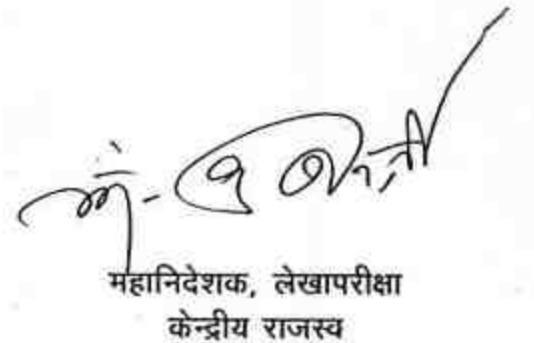 महानिदेशक, लेखापरीक्षा
केन्द्रीय राजस्व